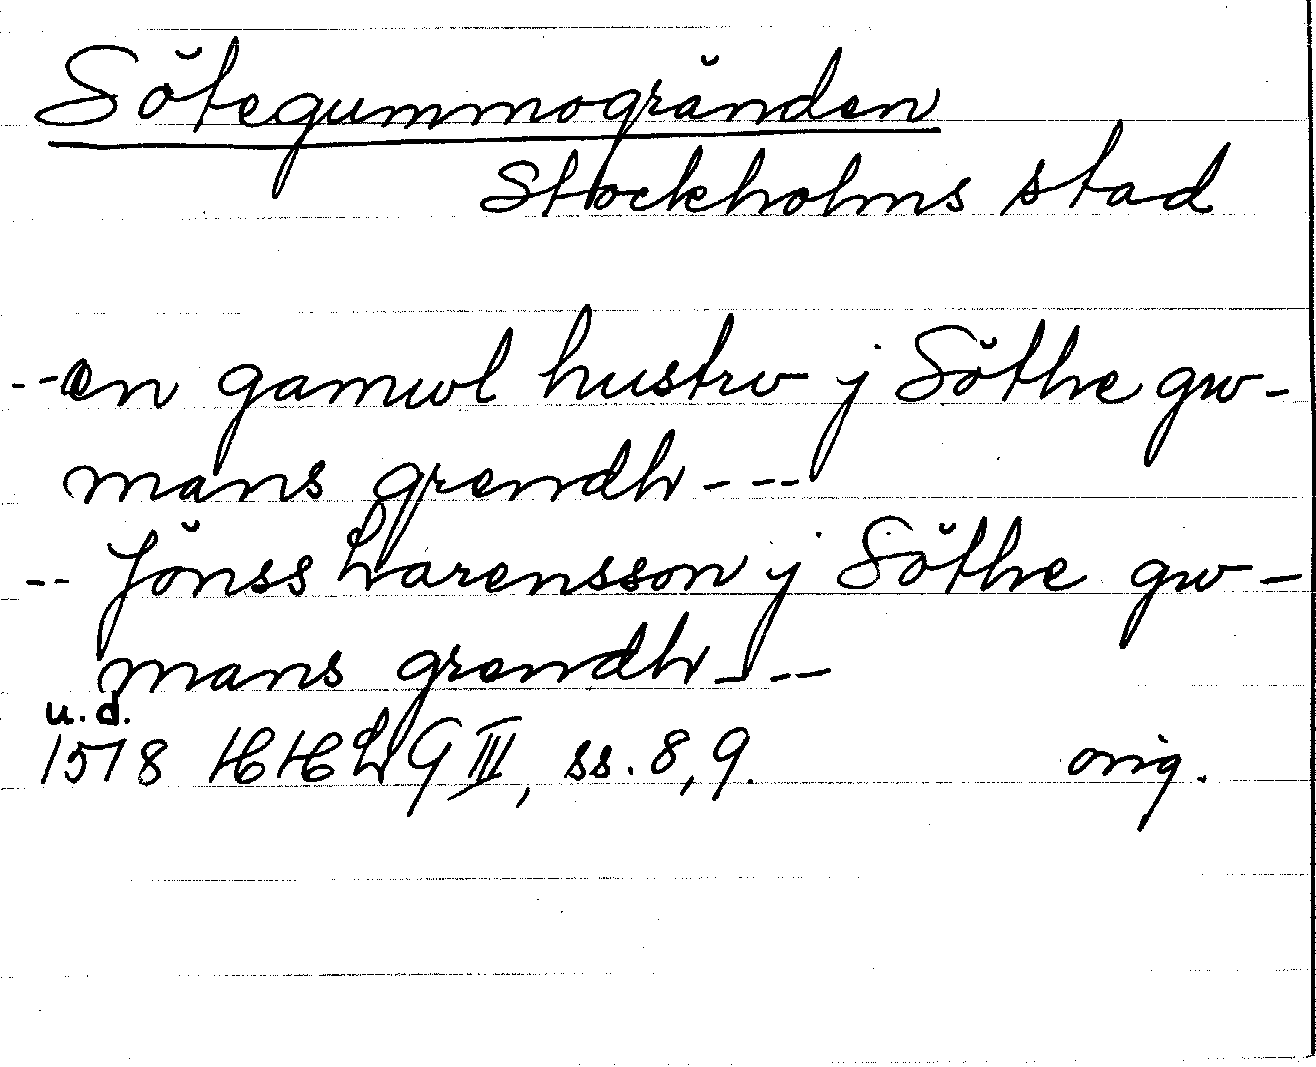 Sötegummogränden
Stockholms stad
-- en gamwl hustrv j Söthe gw-
mans grendh ---
-- Jönss Larensson j Söthe gw-
mans grendh ---
u.d.
1578 HHLG III, ss. 8, 9. orig.